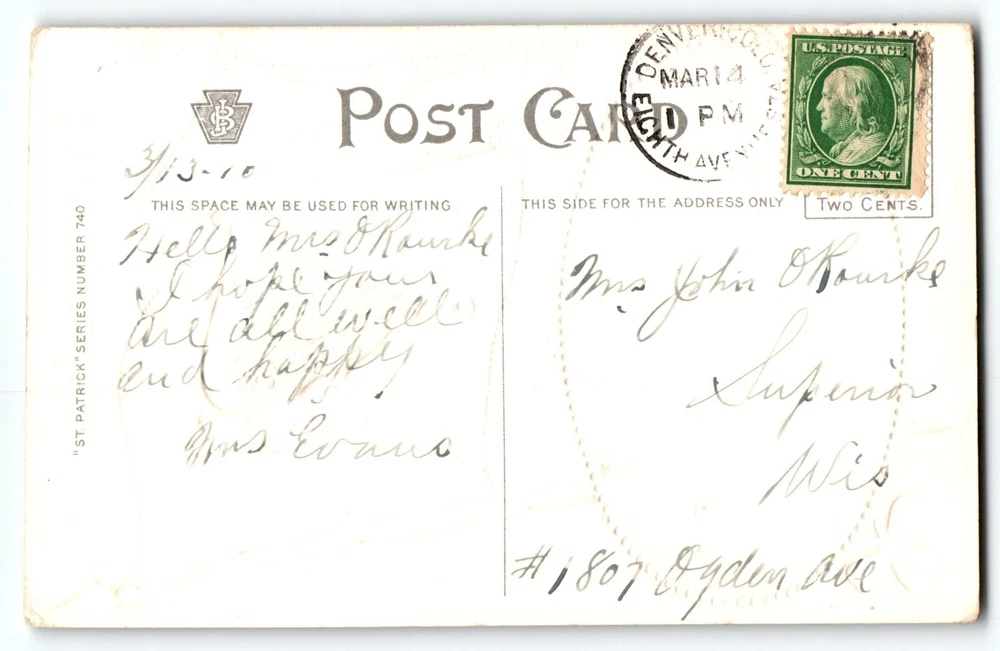 POST CARD
DENVER, COLO.
MAR 14
1 PM
EIGHTH AVENUE STA.
U.S. POSTAGE
ONE CENT
TWO CENTS.
3/13-10
THIS SPACE MAY BE USED FOR WRITING
THIS SIDE FOR THE ADDRESS ONLY
"ST. PATRICK" SERIES NUMBER 740
Hello Mrs O Rourke
I hope your
are all well
and happy
Mrs Evans
Mrs John O Rourke
Superior
Wis
# 1807 Ogden Ave